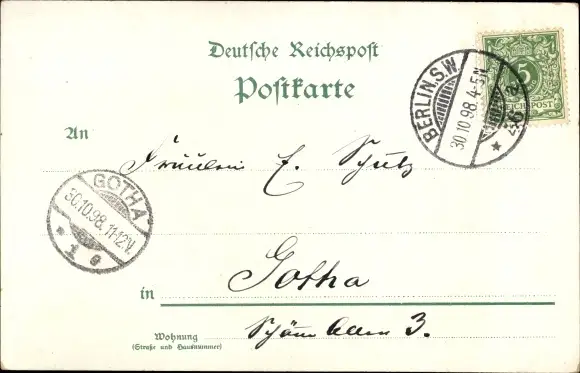 Deutsche Reichspost
Postkarte
5
REICHSPOST
BERLIN.S.W.
30 10 98. 4-5N.
An Fräulein E. Schulz
GOTHA
30.10.98. 11-12V.
* 1 g
in Gotha
Wohnung
(Straße und Hausnummer)
Allee 3.